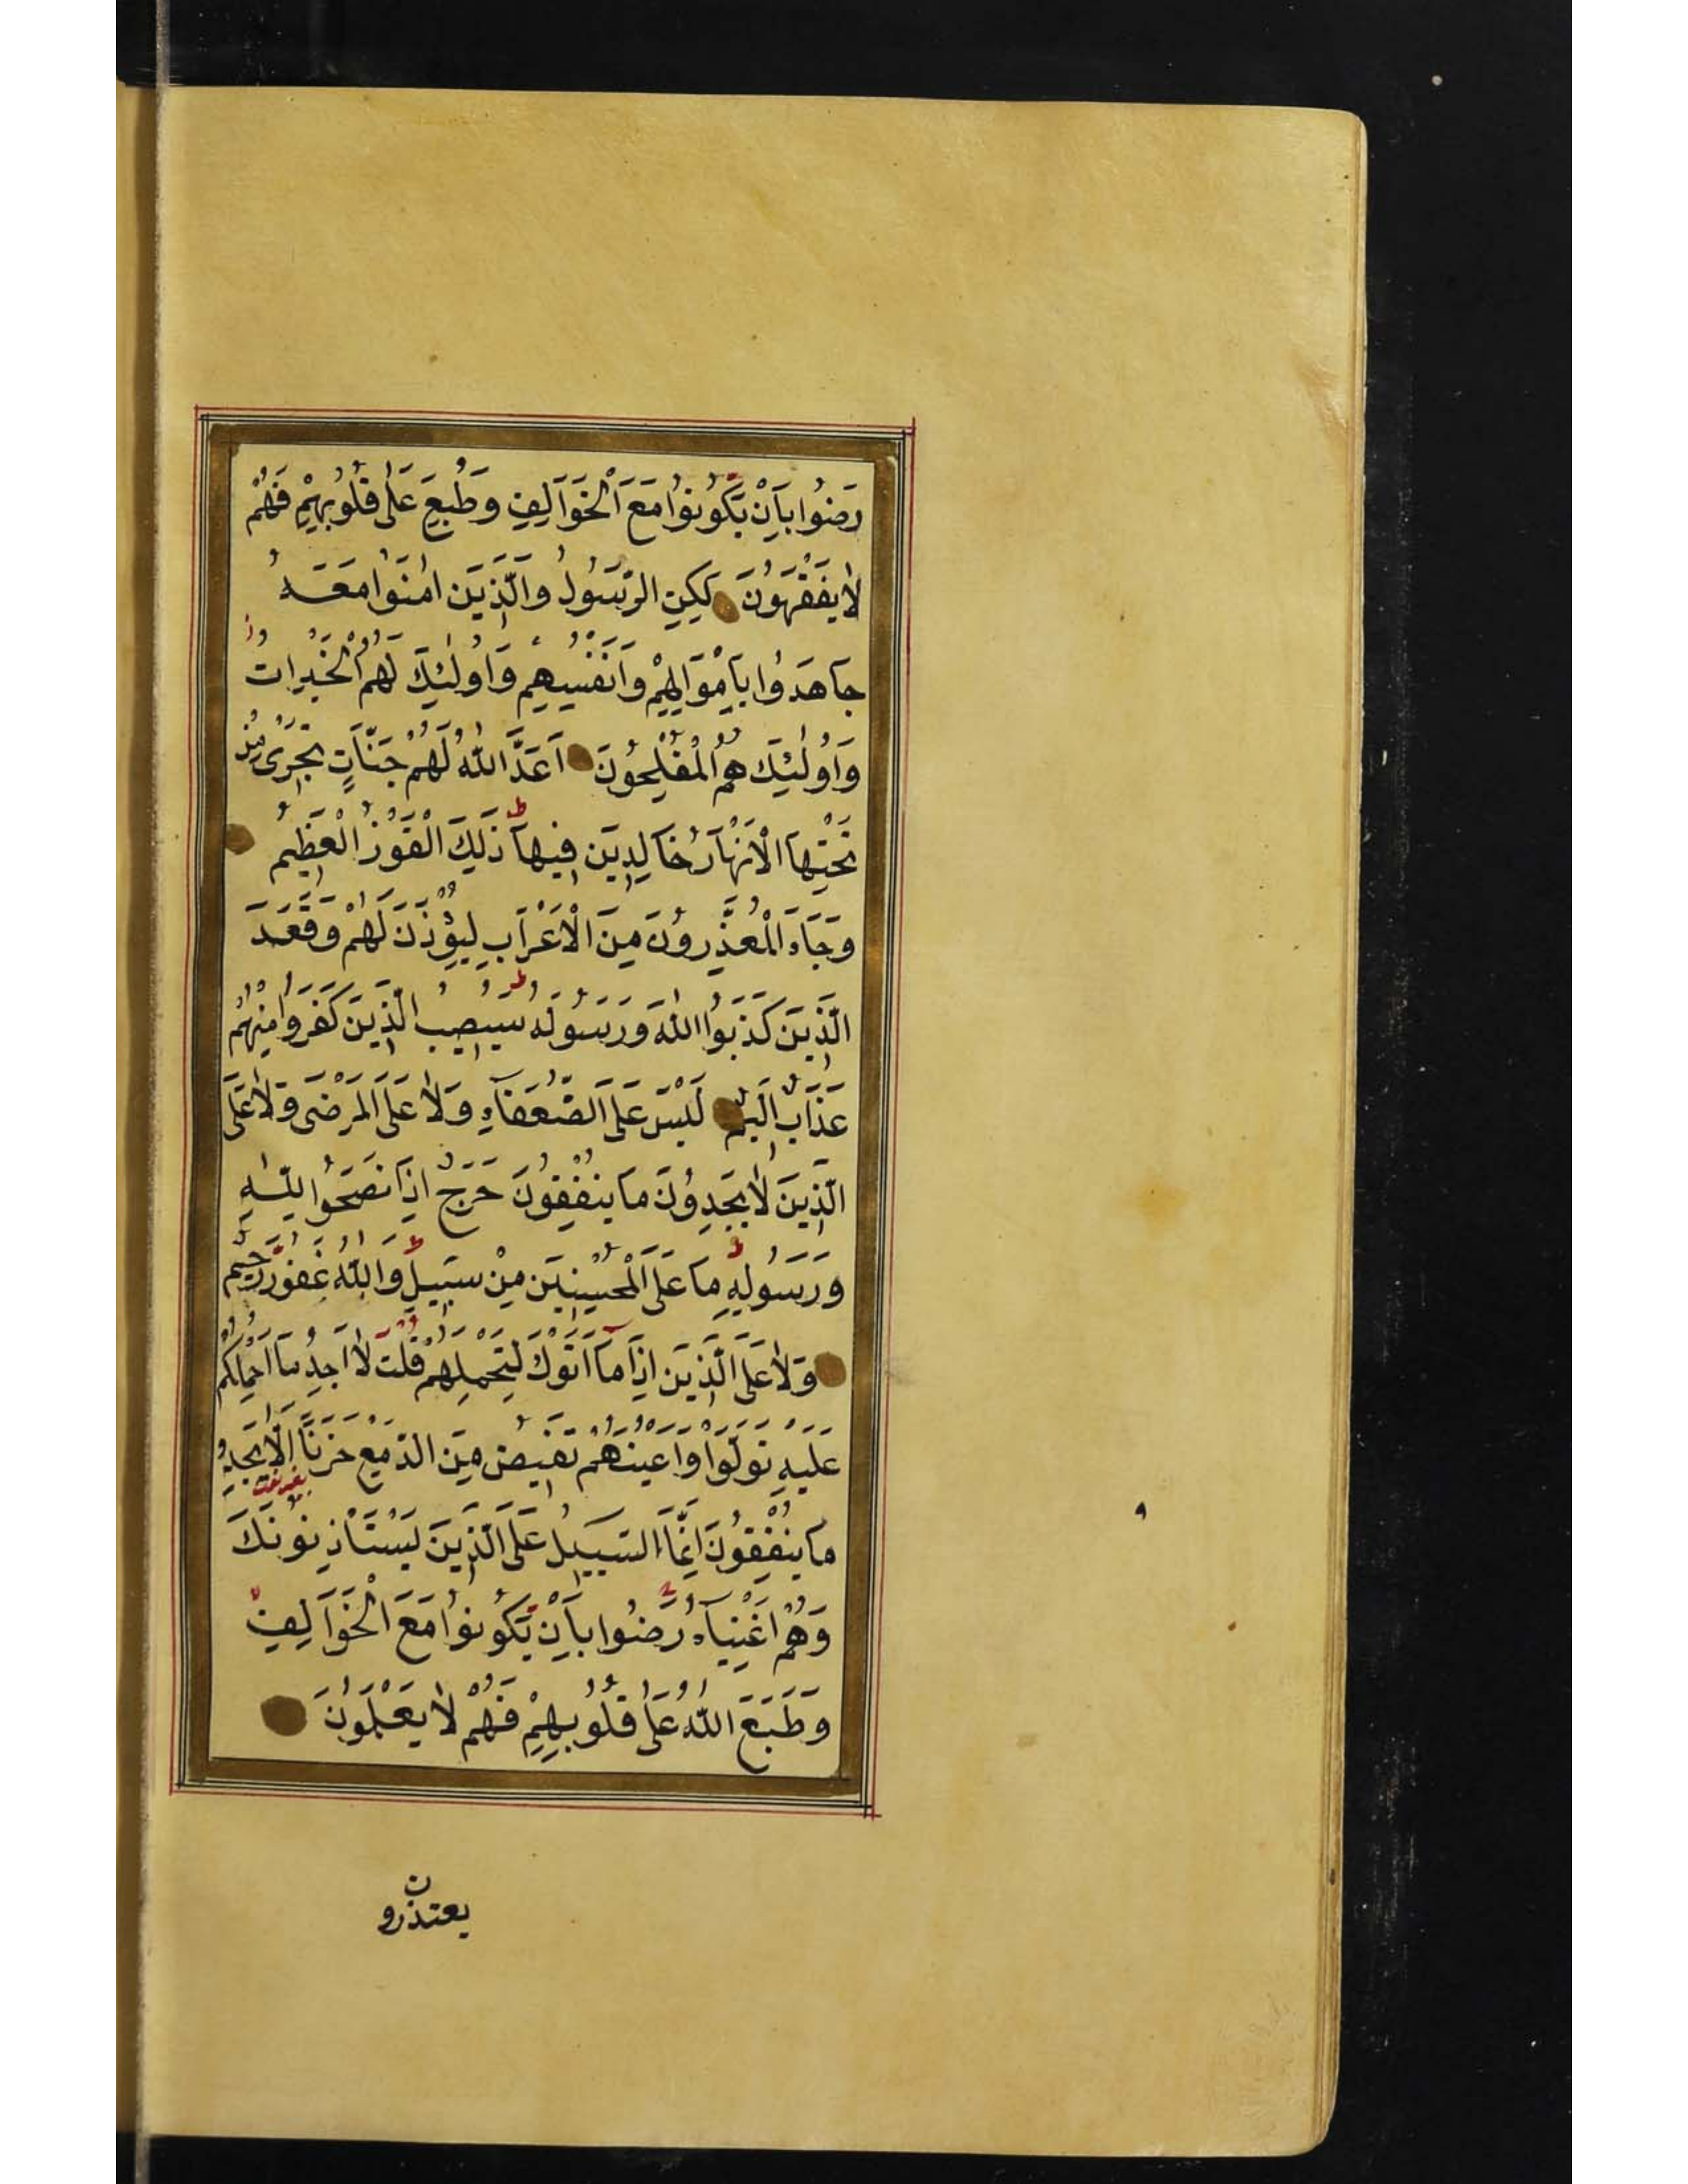 رَضُوا بِاَنْ يَكُونُوا مَعَ الْخَوَالِفِ وَطُبِعَ عَلٰى قُلُوبِهِمْ فَهُمْ
لَا يَفْقَهُونَ لٰكِنِ الرَّسُولُ وَالَّذِينَ اٰمَنُوا مَعَهُ
جَاهَدُوا بِاَمْوَالِهِمْ وَاَنْفُسِهِمْ وَاُولٰئِكَ لَهُمُ الْخَيْرَاتُ
وَاُولٰئِكَ هُمُ الْمُفْلِحُونَ اَعَدَّ اللّٰهُ لَهُمْ جَنَّاتٍ تَجْرِى مِنْ
تَحْتِهَا الْاَنْهَارُ خَالِدِينَ فِيهَا ط ذٰلِكَ الْفَوْزُ الْعَظِيمُ
وَجَاءَ الْمُعَذِّرُونَ مِنَ الْاَعْرَابِ لِيُؤْذَنَ لَهُمْ وَقَعَدَ
الَّذِينَ كَذَبُوا اللّٰهَ وَرَسُولَهُ ط سَيُصِيبُ الَّذِينَ كَفَرُوا مِنْهُمْ
عَذَابٌ اَلِيمٌ لَيْسَ عَلَى الضُّعَفَاءِ وَلَا عَلَى الْمَرْضٰى وَلَا عَلَى
الَّذِينَ لَا يَجِدُونَ مَا يُنْفِقُونَ حَرَجٌ اِذَا نَصَحُوا لِلّٰهِ
وَرَسُولِهِ ط مَا عَلَى الْمُحْسِنِينَ مِنْ سَبِيلٍ ط وَاللّٰهُ غَفُورٌ رَحِيمٌ
وَلَا عَلَى الَّذِينَ اِذَا مَا اَتَوْكَ لِتَحْمِلَهُمْ قُلْتَ لَا اَجِدُ مَا اَحْمِلُكُمْ
عَلَيْهِ تَوَلَّوْا وَاَعْيُنُهُمْ تَفِيضُ مِنَ الدَّمْعِ حَزَنًا اَلَّا يَجِدُوا
مَا يُنْفِقُونَ اِنَّمَا السَّبِيلُ عَلَى الَّذِينَ يَسْتَاْذِنُونَكَ
وَهُمْ اَغْنِيَاءُ رَضُوا بِاَنْ يَكُونُوا مَعَ الْخَوَالِفِ
وَطَبَعَ اللّٰهُ عَلٰى قُلُوبِهِمْ فَهُمْ لَا يَعْلَمُونَ
يعتذرون